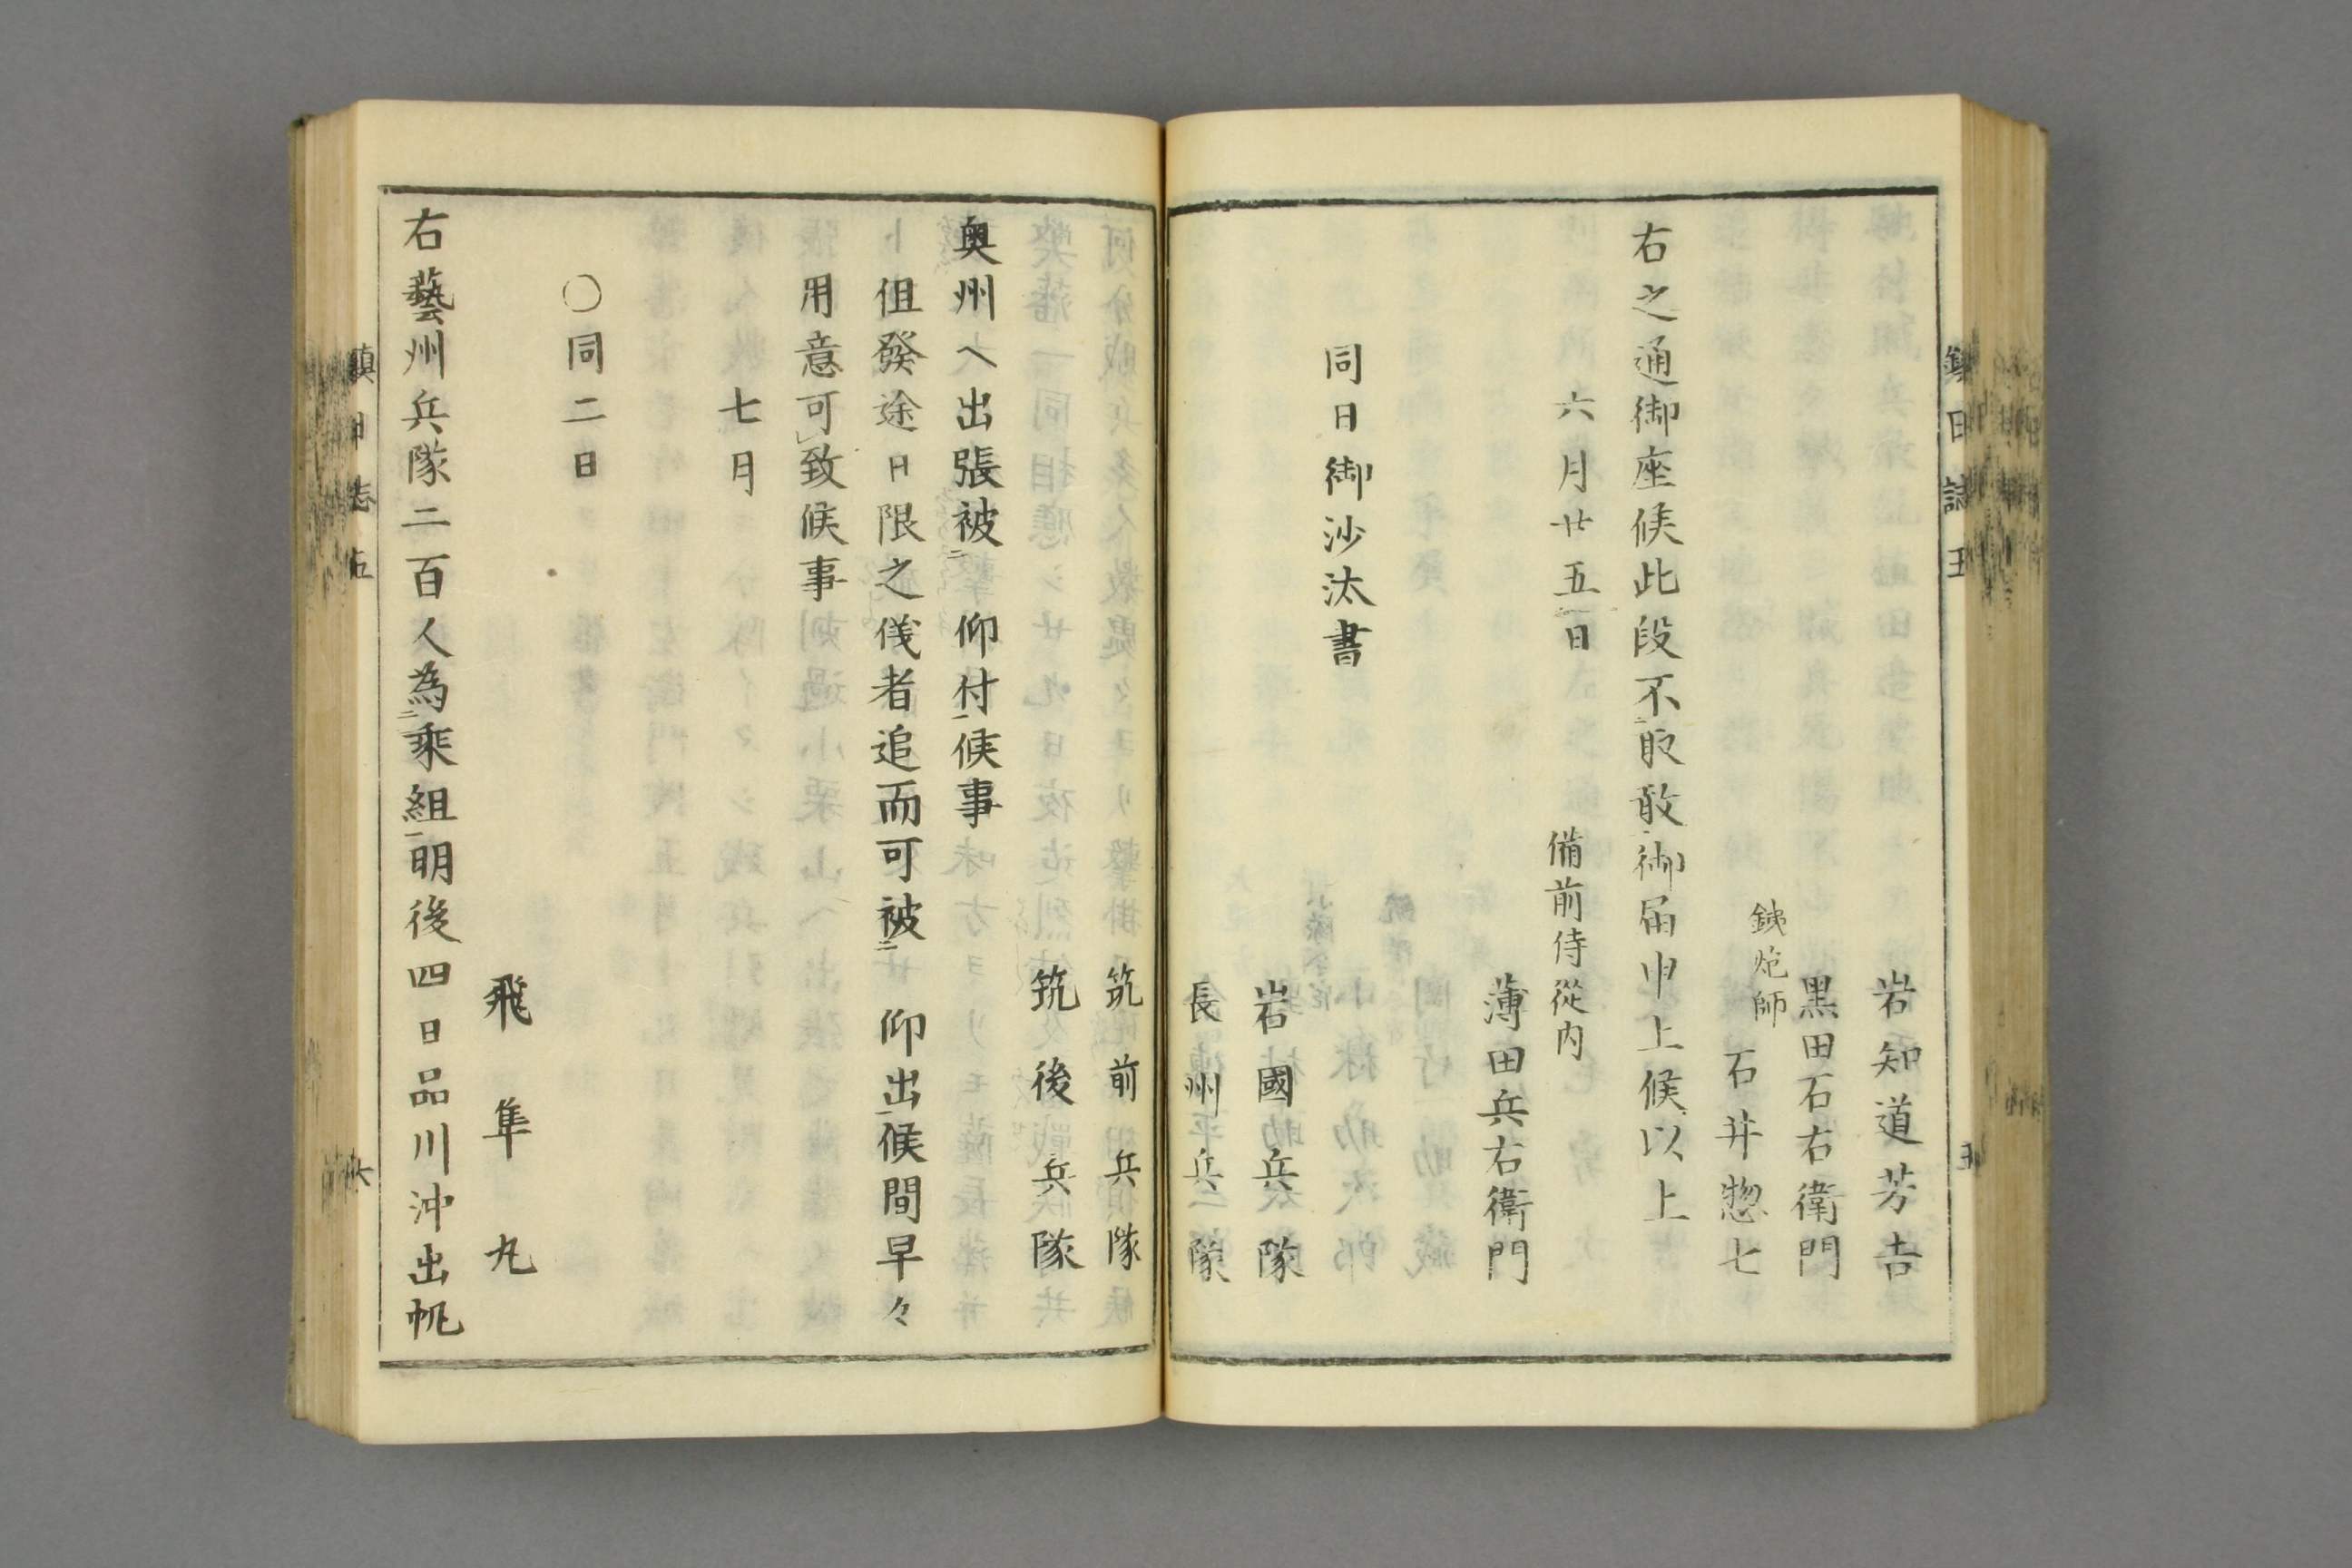 岩知道芳吉
黒田石右衛門
銕炮師
石井惣七
右之通御座候此段不取敢御届申上候以上
六月廿五日
備前侍從内
薄田兵右衛門
同日御沙汰書
岩國兵隊
長州兵隊
筑前兵隊
筑後兵隊
奥州ヘ出張被二 仰付一候事
但發途日限之儀者追而可被二 仰出一候間早々
用意可致候事
七月
○同二日
飛隼丸
右藝州兵隊二百人為二乘組一明後四日品川沖出帆